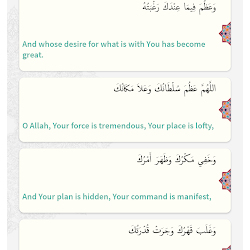 وَعَظُمَ فِيمَا عِنْدَكَ رَغْبَتُهُ
And whose desire for what is with You has become
great.
اَللَّهُمَّ عَظُمَ سُلْطَانُكَ وَعَلاَ مَكَانُكَ
O Allah, Your force is tremendous, Your place is lofty,
وَخَفِيَ مَكْرُكَ وَظَهَرَ أَمْرُكَ
And Your plan is hidden, Your command is manifest,
وَغَلَبَ قَهْرُكَ وَجَرَتْ قُدْرَتُكَ